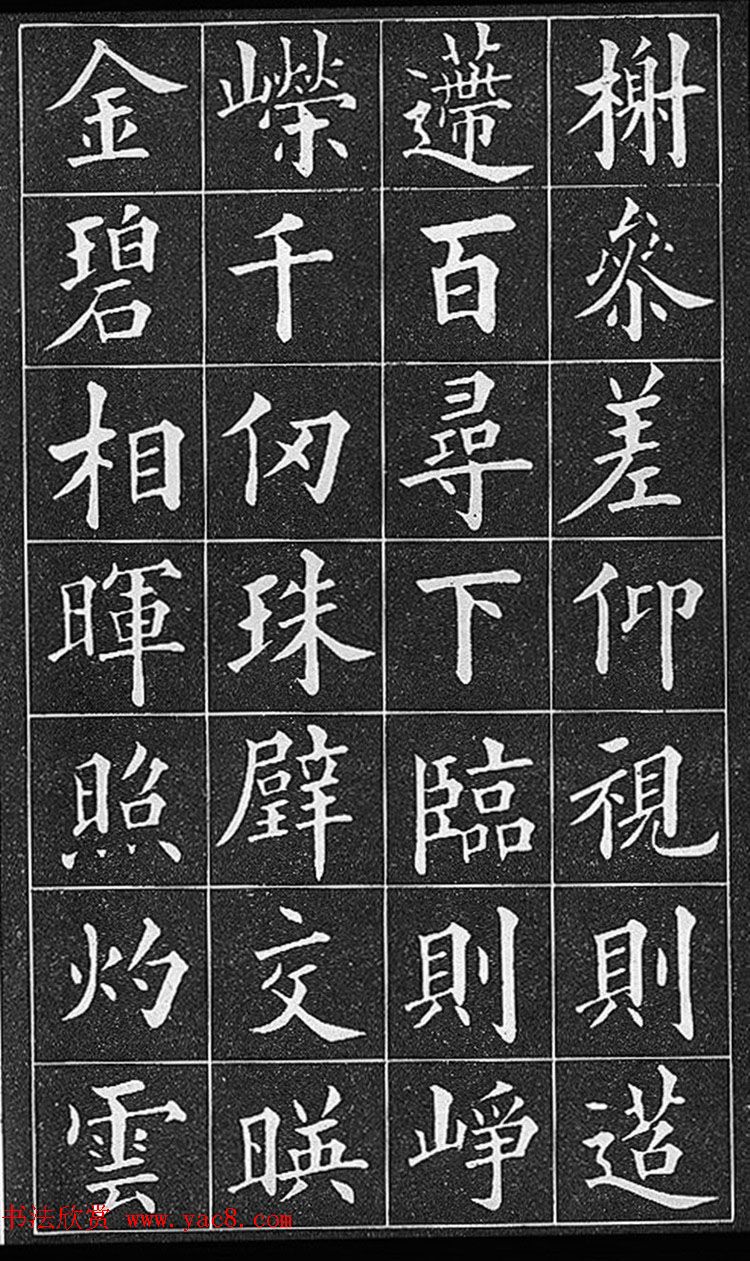 榭叅差仰視則迢
遰百尋下臨則崢
嶸千仞珠璧交暎
金碧相暉照灼雲
书法欣赏 www.yac8.com